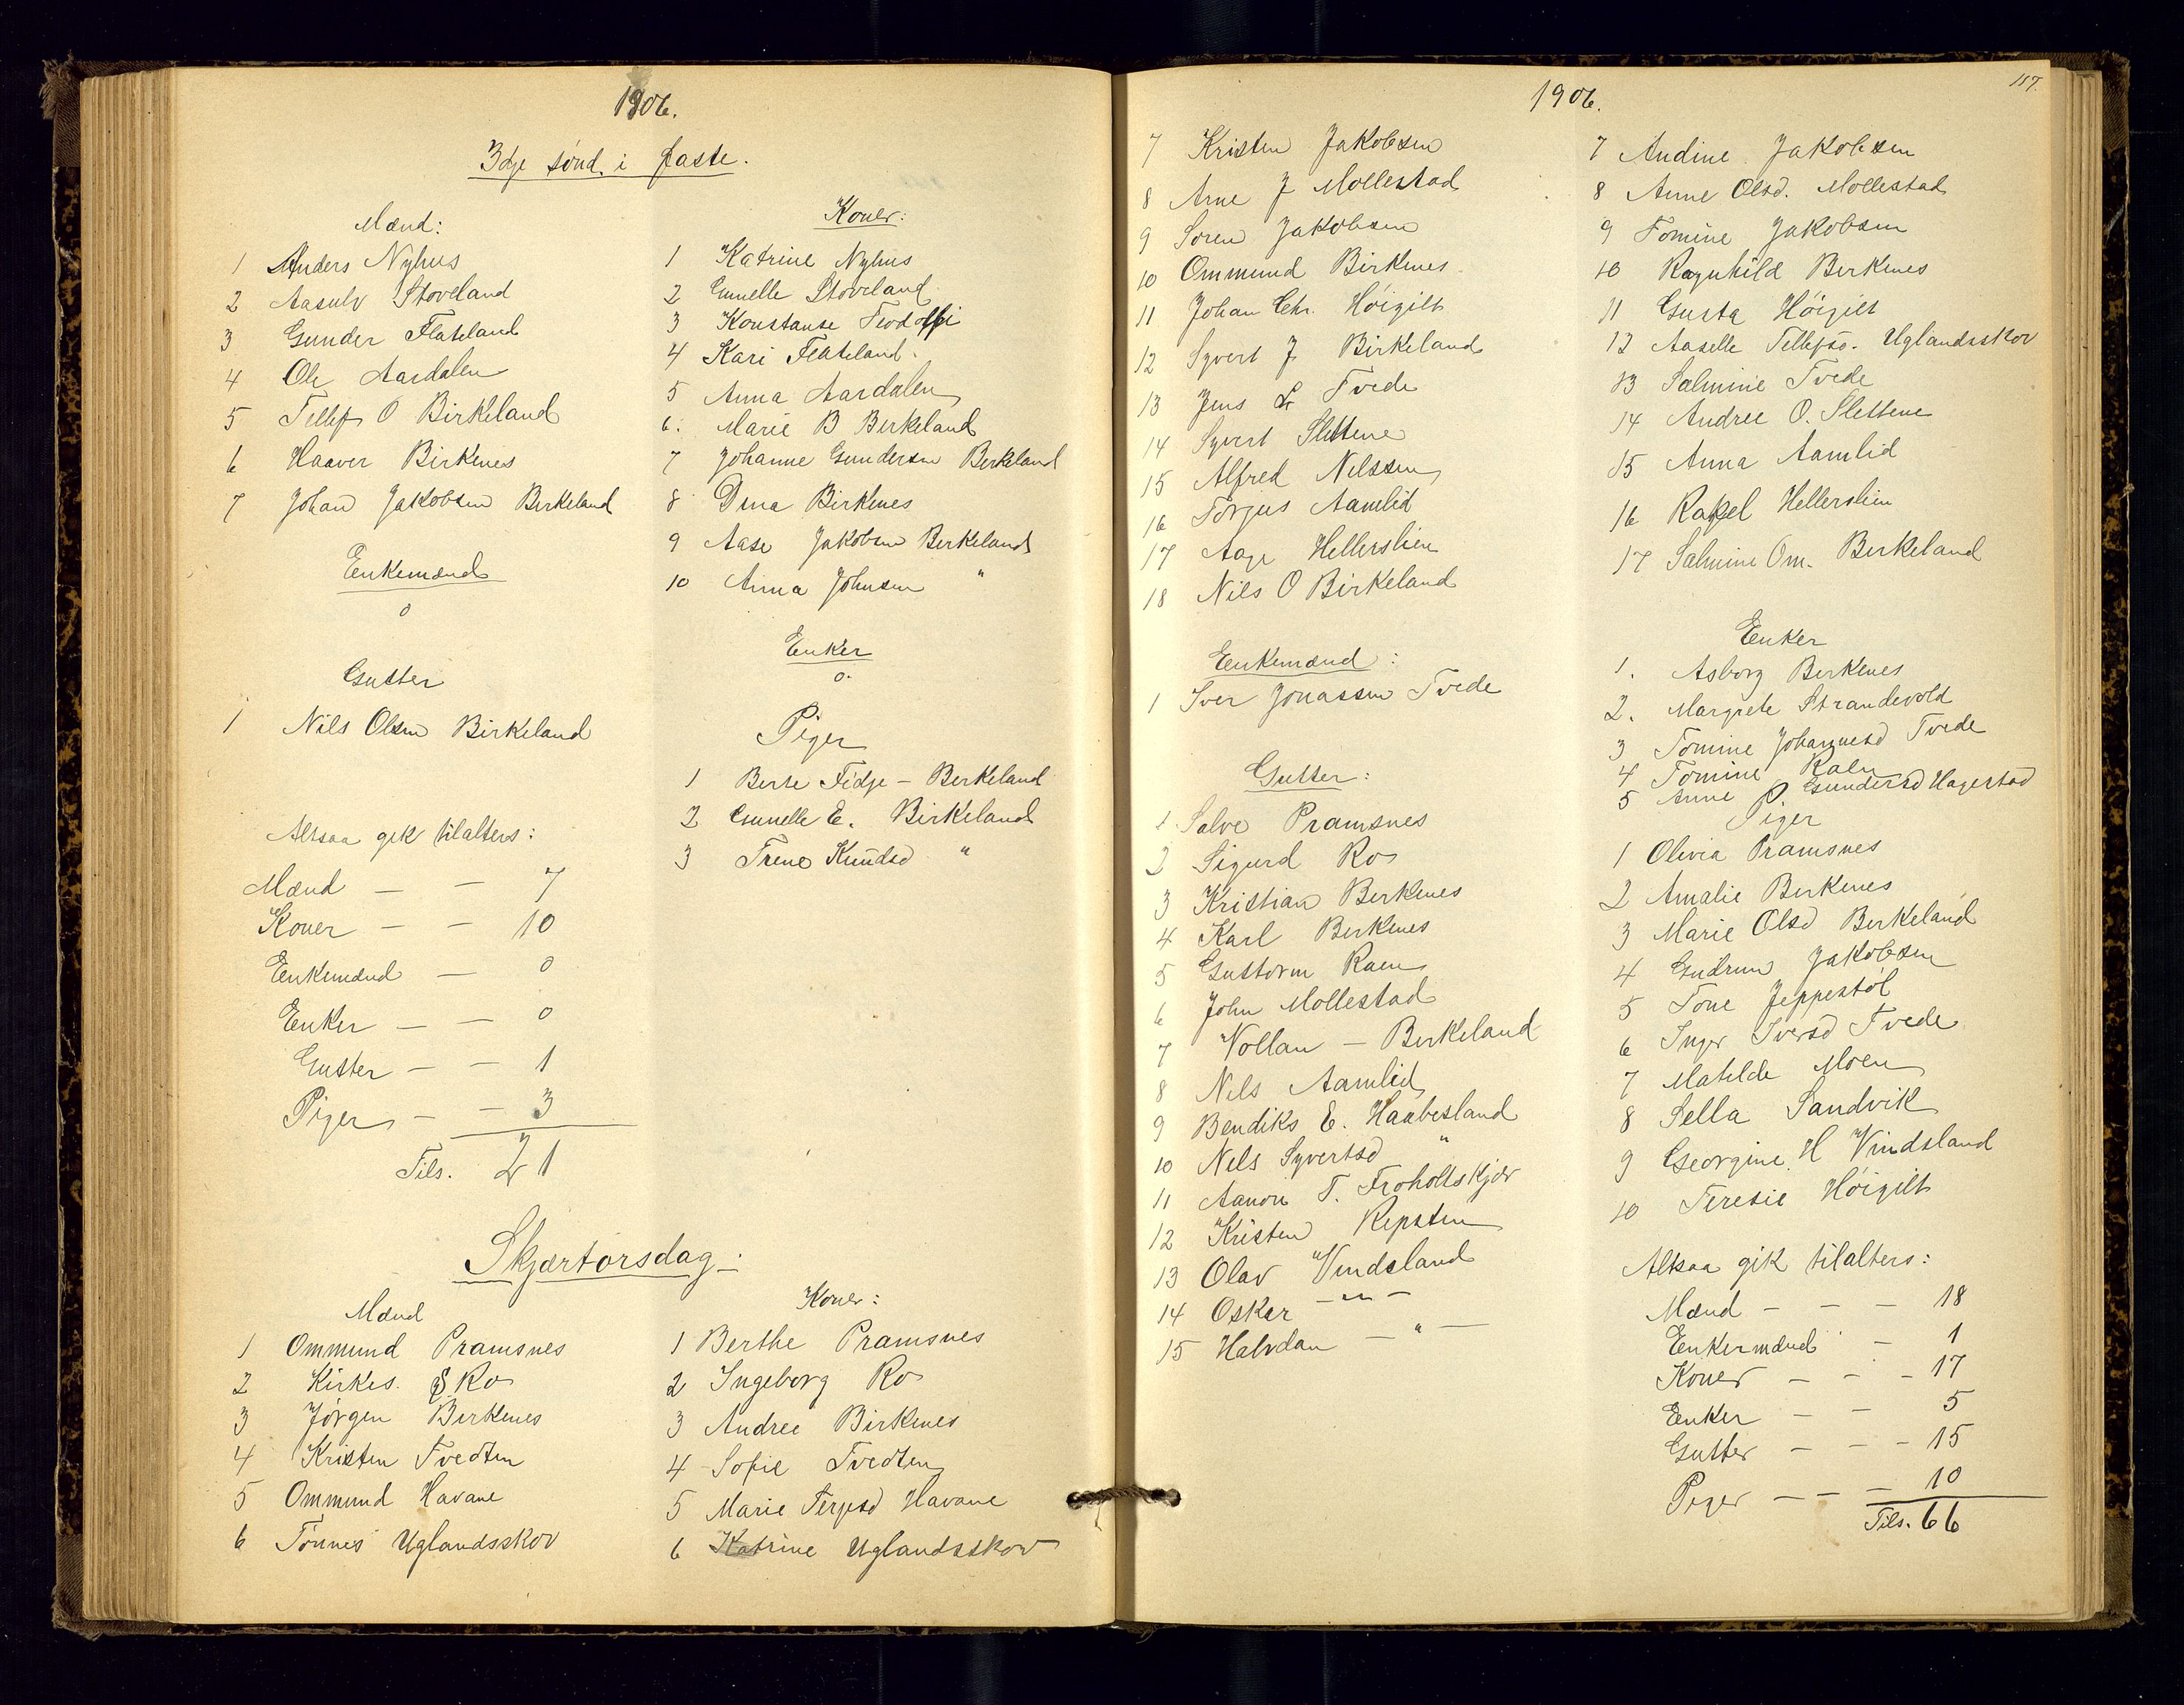 1906.
3dje sønd. i faste.
Mænd:
1 Anders Nyhus
2 Aasulv Stoveland
3 Gunder Flateland
4 Ole Aardalen
5 Tellef O Birkeland
6 Haaver Birkenes
7 Johan Jakobsen Birkeland
Enkemænd
0
Gutter
1 Nils Olsen Birkeland
Altsaa gik tilalters:
Mænd — — 7
Koner — — 10
Enkemænd — 0
Enker — — 0
Gutter — — 1
Piger — — 3
Tils. 21
Koner:
1 Katrine Nyhus
2 Gunelle Stoveland
3 Konstanse
4 Kari Flateland.
5 Anna Aardalen
6. Marie B Birkeland
7 Johanne Gundersen Birkeland
8 Dina Birkenes
9 Aase Jakobsen Birkeland
10 Anna Johnsen "
Enker
0.
Piger
1 Berte Fidje - Birkeland
2 Gunelle E. Birkeland
3 Trene Knudsd "
Skjærtorsdag:
Mænd
1 Ommund Pramsnes
2 Kirkes. Ro
3 Jørgen Birkenes
4 Kristen Tvedten
5 Ommund Havane
6 Tønnes Uglandsskov
Koner:
1 Berthe Pramsnes
2 Ingeborg Ro
3 Andree Birkenes
4 Sofie Tvedten
5 Marie Terjesd Havane
6 Katrine Uglandsskov
1906.
117.
7 Kristen Jakobsen
8 Arne J Mollestad
9 Søren Jakobsen
10 Ommund Birkenes
11 Johan Chr. Høigilt
12 Syvert J. Birkeland
13 Jens L Tvede
14 Syvert Slettene
15 Alfred Nilssen
16 Torjus Aamlid
17 Aage Hellerslien
18 Nils O Birkeland
Enkemænd:
1 Iver Jonassen Tvede
Gutter:
1 Salve Pramsnes
2 Sigurd Ro
3 Kristian Birkenes
4 Karl Birkenes
5 Guttorm Raen
6 John Mollestad
7 Nollan — Birkeland
8 Nels Aamlid
9 Bendiks E. Haabesland
10 Nels Syvertsd "
11 Aanon T. Froholtskjær
12 Kristen Repsten
13 Olav Vindsland
14 Oskar — " —
15 Halvdan — " —
7 Andine Jakobsen
8 Anne Olsd. Mollestad
9 Tomine Jakobsen
10 Ragnhild Birkenes
11 Gusta Høigilt
12 Aaselle Tellefsd. Uglandsskov
13 Salmine Tvede
14 Andree O. Slettene
15 Anna Aamlid
16 Rakel Hellerslien
17 Salmine Om. Birkeland
Enker
1. Asborg Birkenes
2. Margrete Strandevold
3 Tomine Johannesd Tvede
4 Tomine Raen
5 Anne Gundersd Hagestad
Piger
1 Olivia Pramsnes
2 Amalie Birkenes
3 Marie Olsd Birkeland
4 Gudrun Jakobsen
5 Tone Jeppestøl
6 Inger Iversd Tvede
7 Matilde Moen
8 Sella Sandvik
9 Georgine H Vindsland
10 Teresie Høigilt
Altsaa gik tilalters:
Mænd — — — 18
Enkermænd — 1
Koner — — — 17
Enker — — 5
Gutter — — — 15
Piger — — — 10
Tils. 66